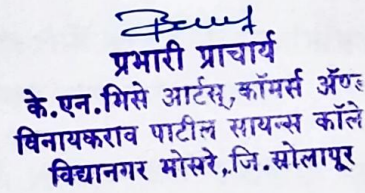 प्रभारी प्राचार्य
के.एन.भिसे आर्टस्,कॉमर्स ॲण्ड
विनायकराव पाटील सायन्स कॉले
विद्यानगर भोसरे,.जि.सोलापूर